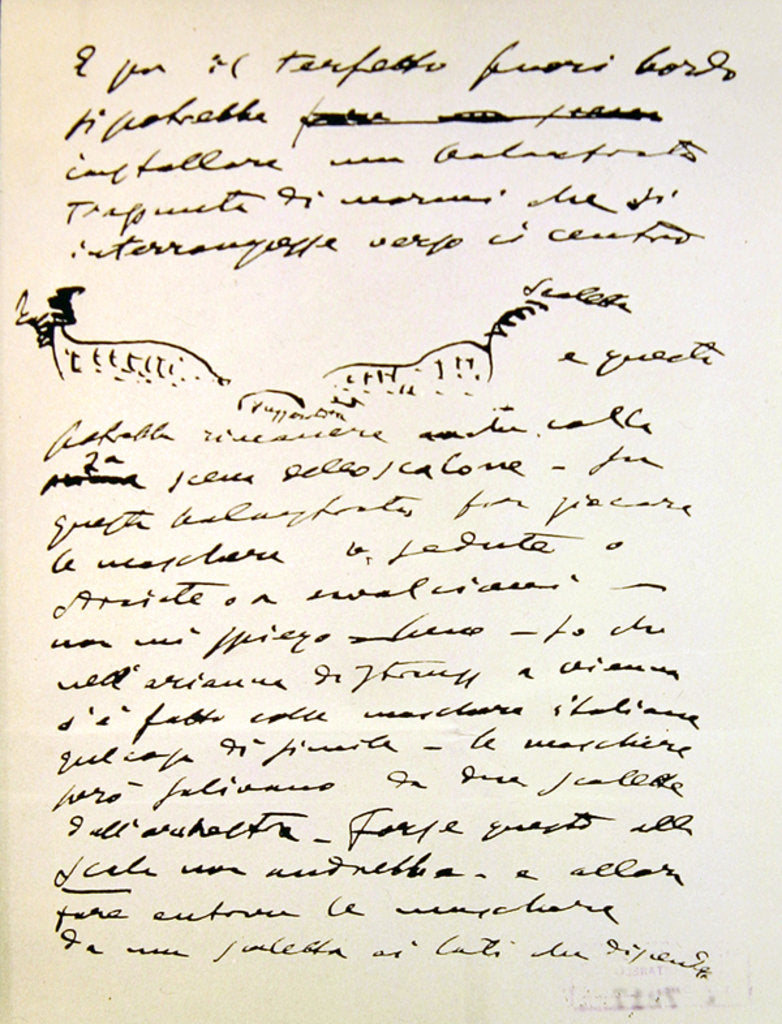 E per il terzetto fuori bordo
si potrebbe
installare una balaustrata
trapunta di marmi che si
interrompesse verso il centro
Scaletta
e questa
Suggeritore
potrebbe rimanere anche colla
2a scena dello scalone - su
questa balaustrata far giocare
le maschere o sedute o
strisciate o a cavalcioni -
non mi spiego bene - so che
nell'arianna di Strauss a vienna
s'è fatto colle maschere italiane
qualcosa di simile - le maschere
però salivano da due scalette
dall'orchestra - Forse questo alla
Scala non andrebbe - e allora
fare entrare le maschere
da una scaletta ai lati che discende